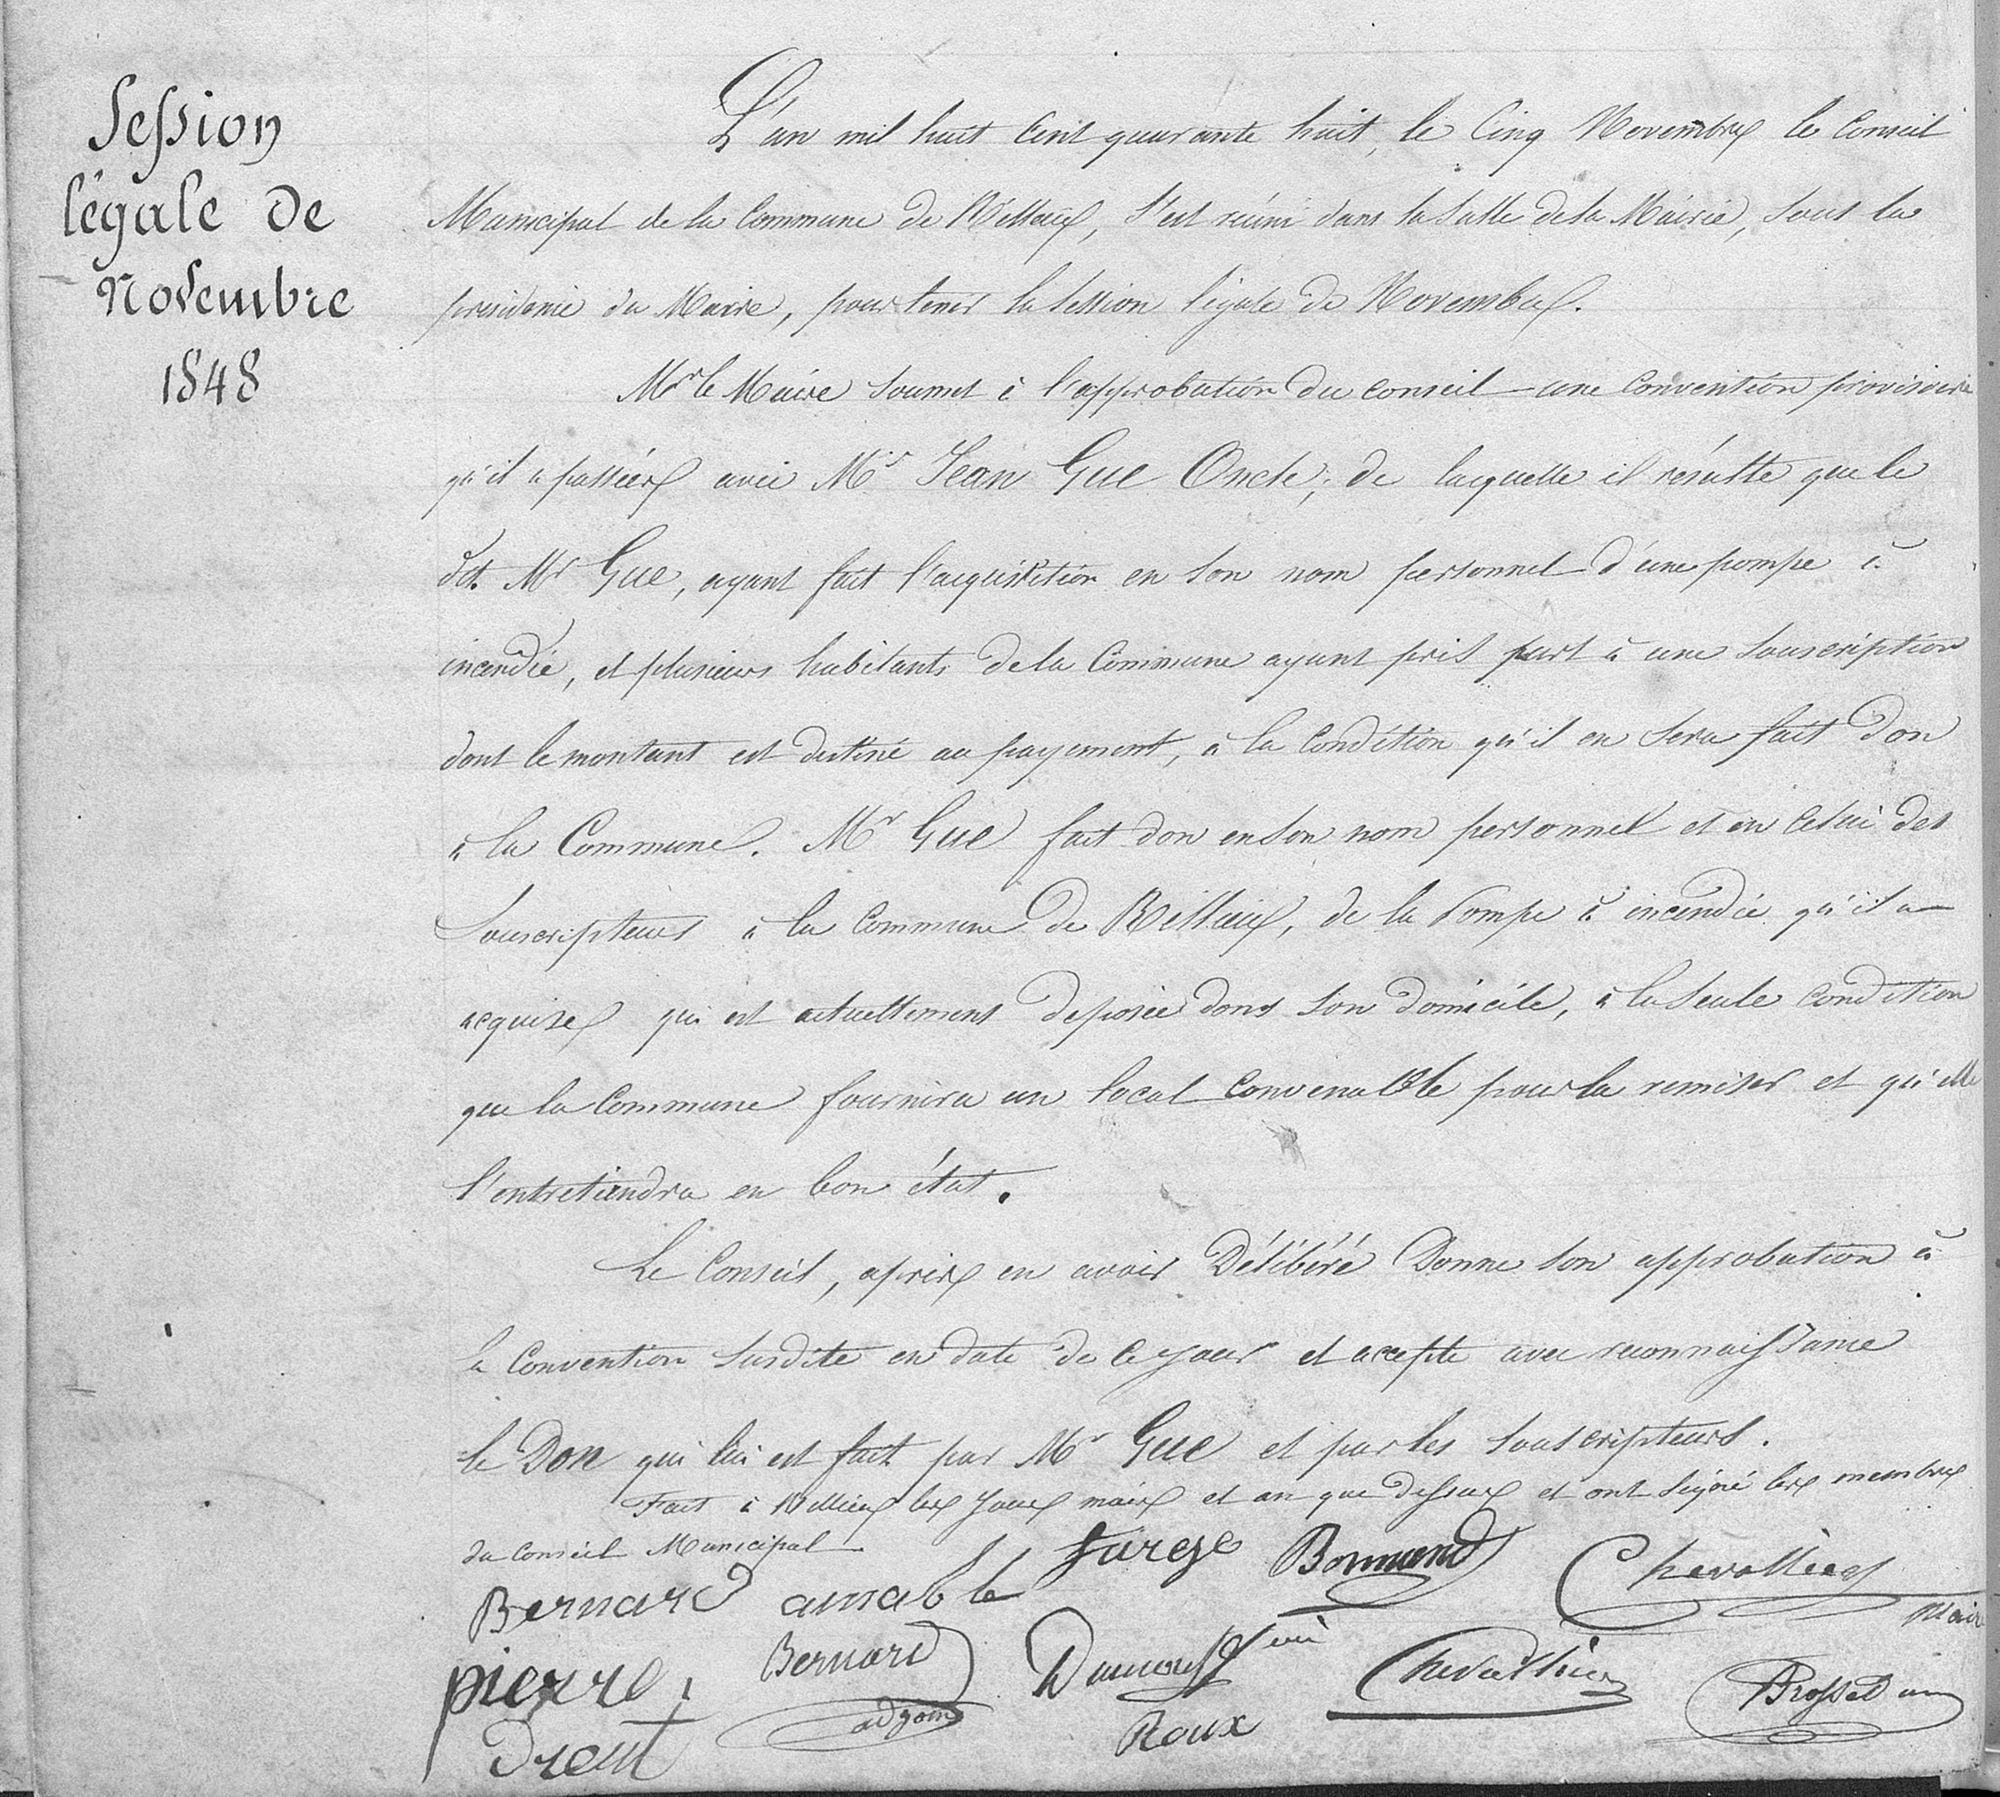 Session
légale de
Novembre
1848
L'an mil huit cent quarante huit, le Cinq Novembre le Conseil
Municipal de la Commune de Billaux, s'est réuni dans la Salle de la Mairie, sous la
présidence du Maire, pour tenir la Session légale de Novembre.
Mr le Maire soumet à l'approbation du Conseil une convention provisoire
qu'il a passée avec Mr Jean Gue Oncle; de laquelle il résulte que le
dt. Mr Gue, ayant fait l'acquisition en son nom personnel d'une pompe à
incendie, et plusieurs habitants de la Commune ayant pris part à une Souscription
dont le montant est destiné au payement, à la Condition qu'il en sera fait don
à la Commune. Mr Gue fait don en son nom personnel et en celui des
Souscripteurs à la Commune de Billaux, de la Pompe à incendie qu'il a
acquise qui est actuellement deposée dans son domicile, à la seule condition
que la Commune fournira un local convenable pour la remiser et qu'elle
l'entretiendra en bon état.
Le Conseil, après en avoir Délibéré Donne son approbation à
la Convention susdite en date de ce jour et accepte avec reconnaissance
le Don qui lui est fait par Mr Gue et par les Souscripteurs.
Fait à Billaux les jour mois et an que dessus et ont signé les membres
du Conseil Municipal
Bernard amable Farge Chevallier
Maire
pierre Bernard Chevallier
adjoint Roux